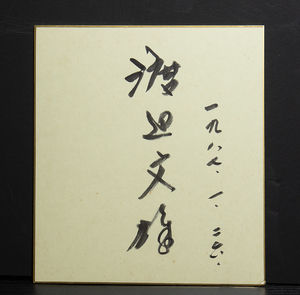 渡辺文雄
一九八八、一、二六、